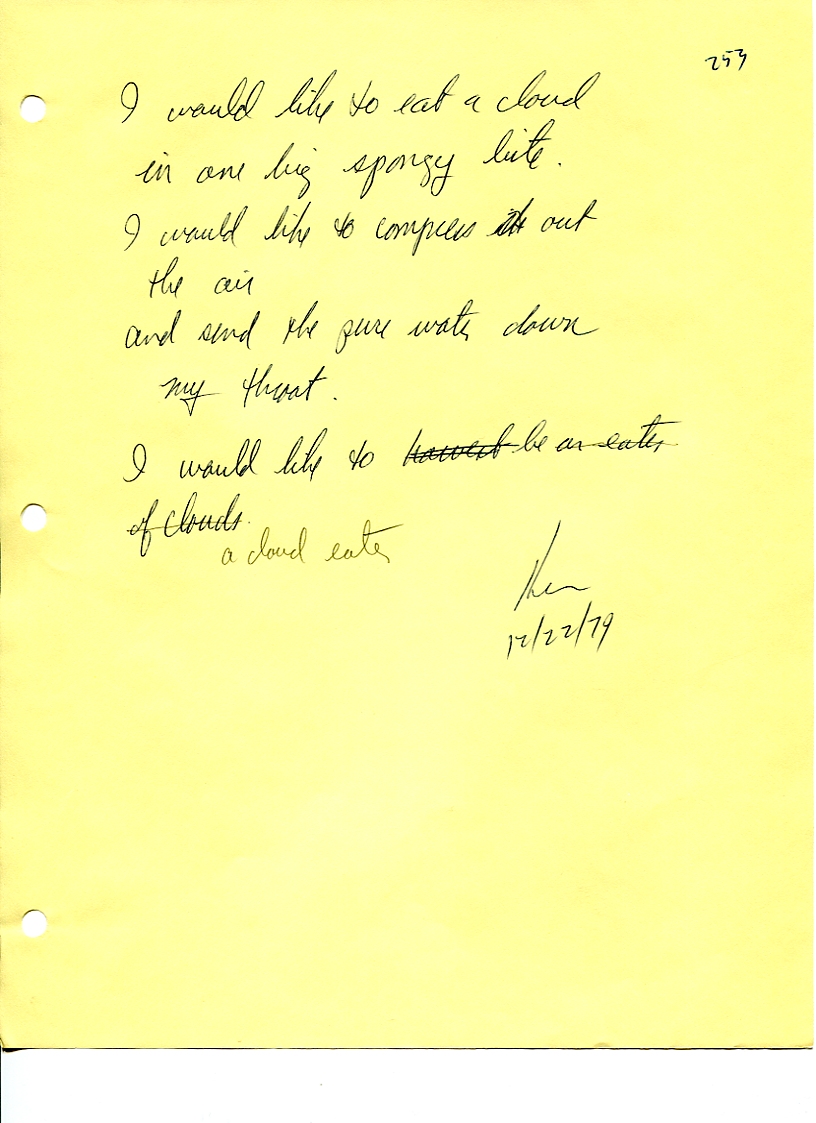 253
I would like to eat a cloud
in one big spongy bite.
I would like to compress out
the air
and send the pure water down
my throat.
I would like to be an eater
of clouds.
a cloud eater
Ken
12/22/79